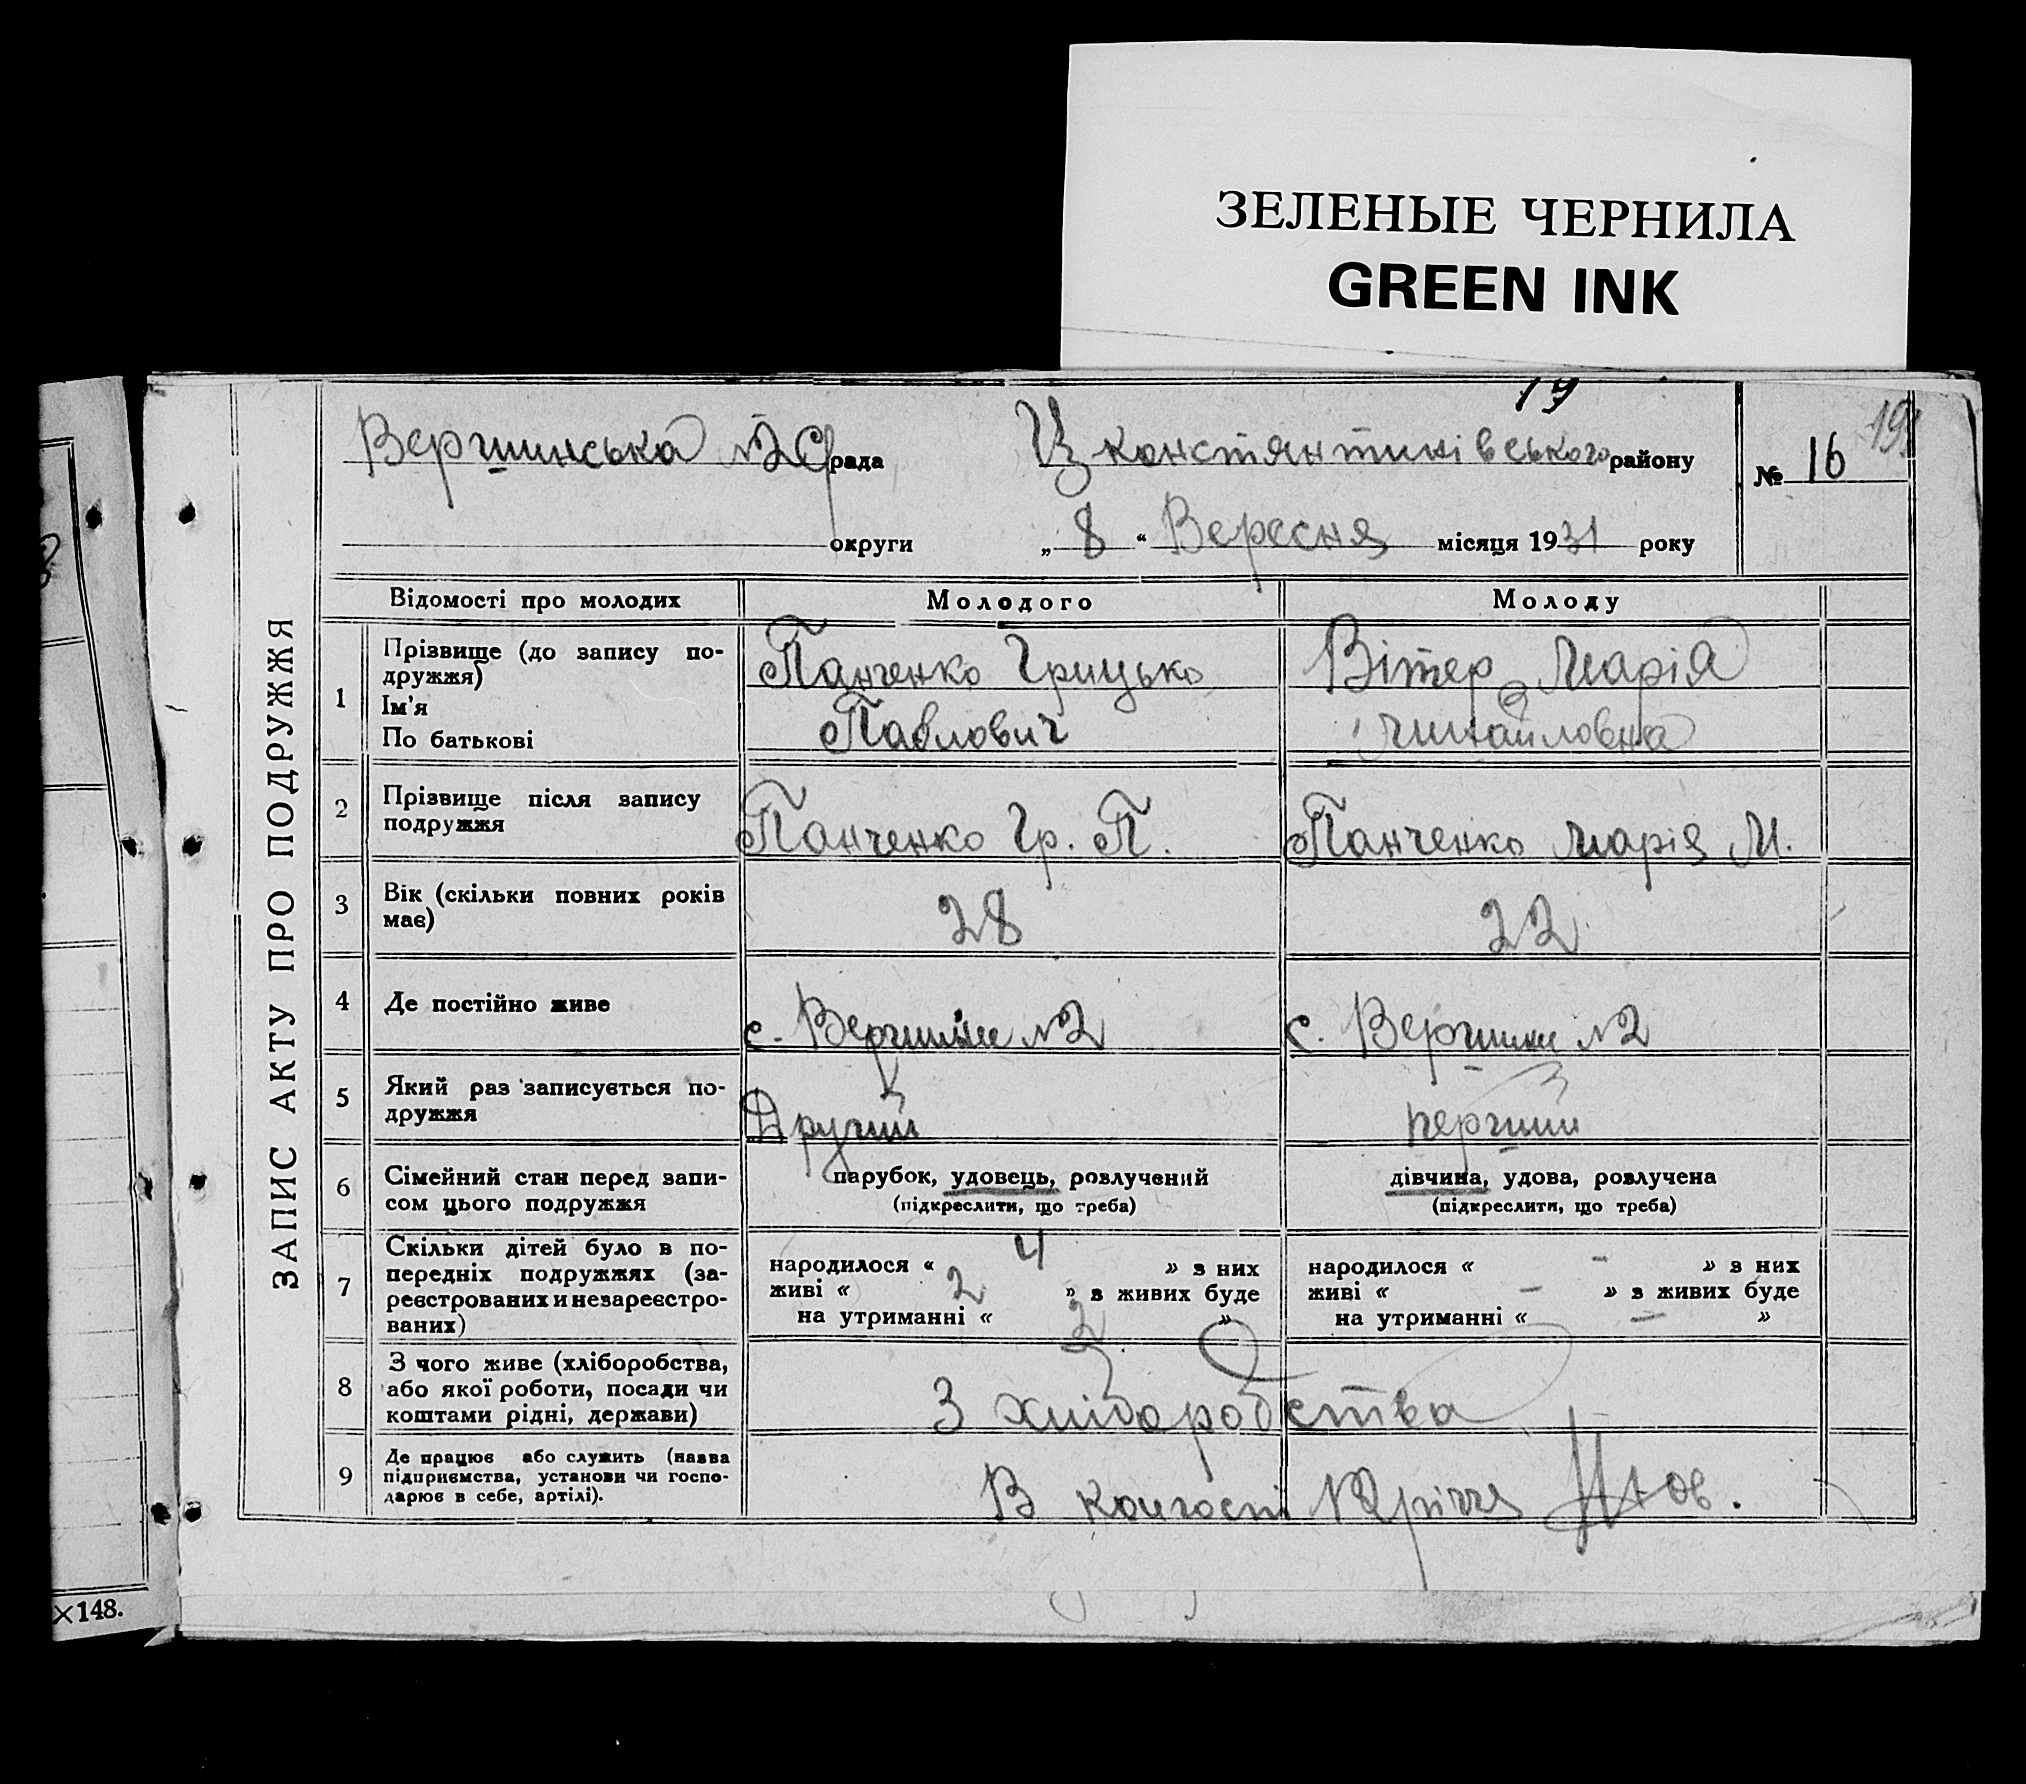 ЗЕЛЕНЫЕ ЧЕРНИЛА
GREEN INK
19
Вершинська №2 С/рада Цконстянтинівського району № 16
округи „ 8 “ Вересня місяця 1931 року
ЗАПИС АКТУ ПРО ПОДРУЖЖЯ
Відомості про молодих Молодого Молоду
1 Прізвище (до запису по-
дружжя)
Ім'я
По батькові
Панченко Грицько
Павлович
Вітер Марія
Михайловна
2 Прізвище після запису
подружжя
Панченко Гр. П.
Панченко Марія М.
3 Вік (скільки повних років
має)
28
22
4 Де постійно живе
с. Вершини №2
с. Вершини №2
5 Який раз записується по-
дружжя
Другий
перший
6 Сімейний стан перед запи-
сом цього подружжя
парубок, удовець, розлучений
(підкреслити, що треба)
дівчина, удова, розлучена
(підкреслити, що треба)
7 Скільки дітей було в по-
передніх подружжях (за-
реєстрованих и незареєстро-
ваних)
народилося « 4 » з них
живі « 2 » з живих буде
на утриманні « 2 »
народилося « - » з них
живі « - » з живих буде
на утриманні « - »
8 З чого живе (хліборобства,
або якої роботи, посади чи
коштами рідні, держави)
З хліборобства
9 Де працює або служить (назва
підприємства, установи чи госпо-
дарює в себе, артілі).
В колгоспі
×148.